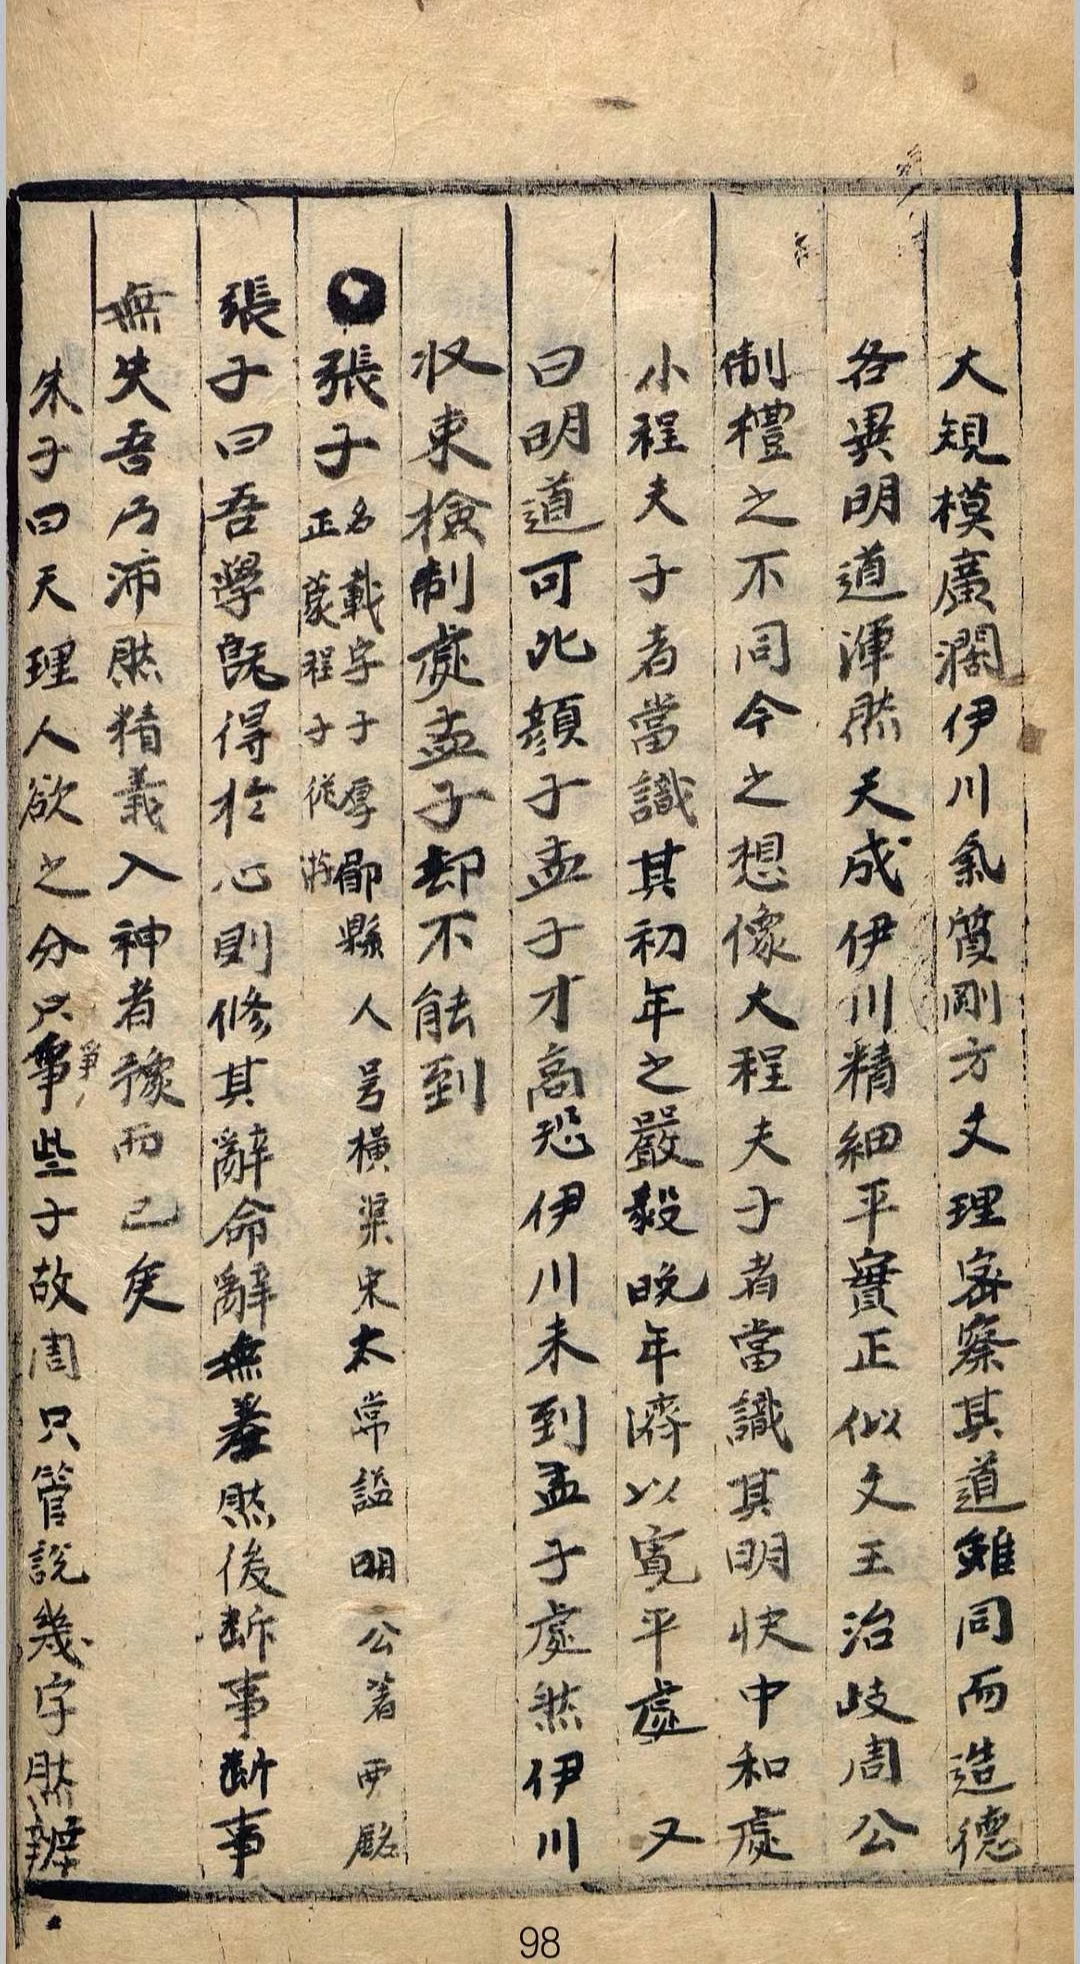 大規模廣濶伊川氣質剛方文理密察其道雖同而造德
各異明道渾然天成伊川精細平實正似文王治岐周公
制禮之不同今之想像大程夫子者當識其明快中和處
小程夫子者當識其初年之嚴毅晩年濟以寬平處 又
曰明道可比顔子孟子才高恐伊川未到孟子處然伊川
收束檢制處孟子却不能到
張子名載字子厚郿縣人号橫渠宋太常謚明公著西銘
正蒙程子從游
張子曰吾學旣得於心則修其辭命辭無差然後断事断事
無失吾乃沛然精義入神者豫而已矣
朱子曰天理人欲之分只爭些子故周只管說幾字然辨
98